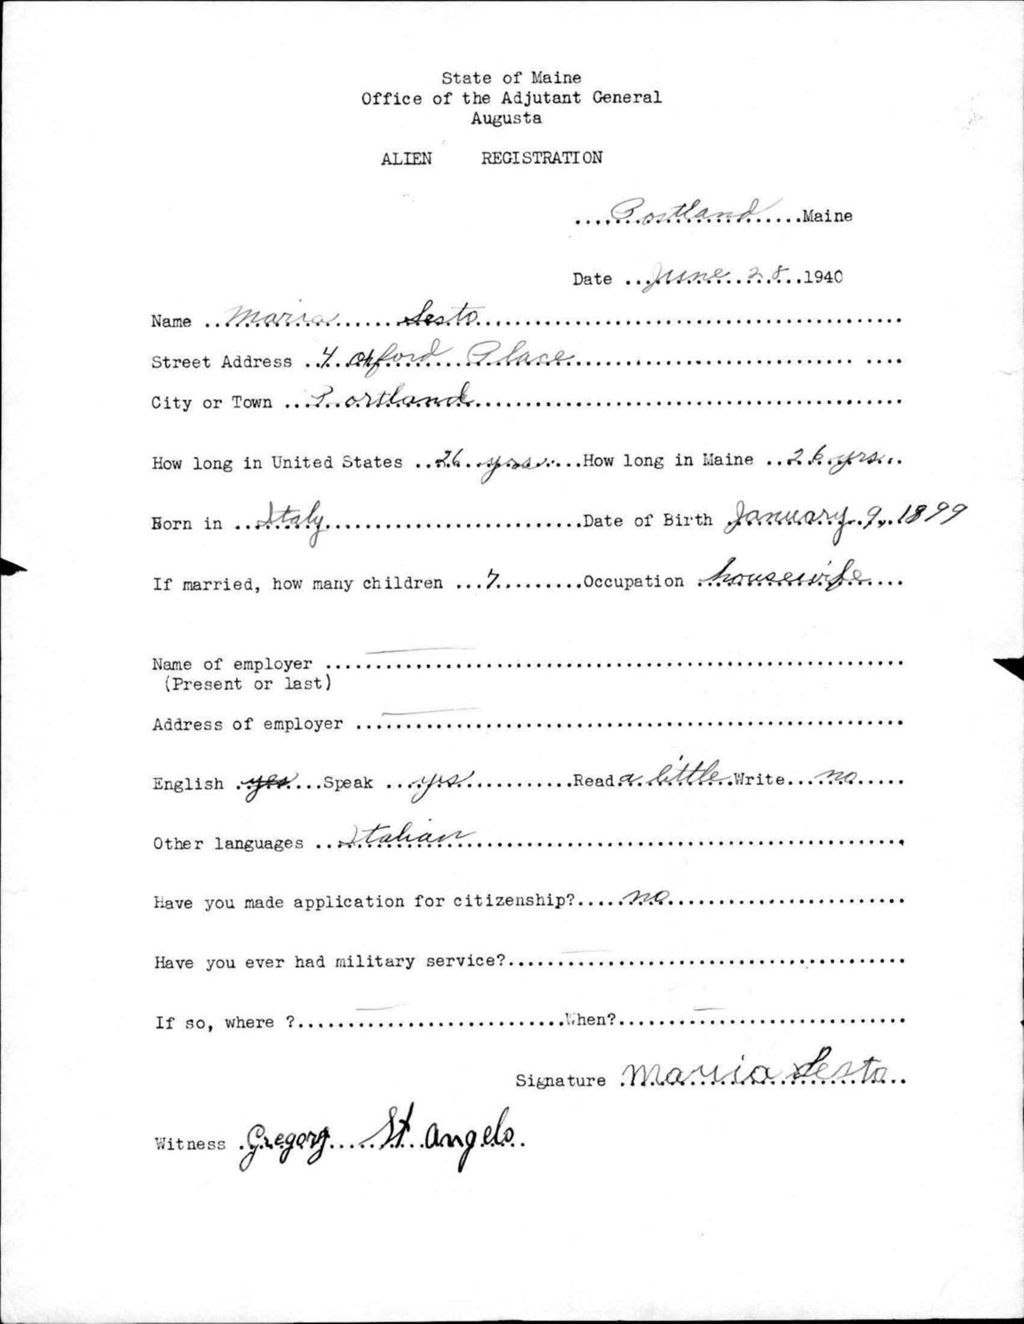 State of Maine
Office of the Adjutant General
Augusta
ALIEN REGISTRATION
....Portland....Maine
Date ...June 28...1940
Name ..Maria Sesto..............................
Street Address ..4 Oxford Place..............................
City or Town ...Portland..............................
How long in United States ..26 yrs....How long in Maine ..26 yrs...
Born in ...Italy..............................Date of Birth January 9, 1899
If married, how many children ...7.........Occupation .housewife....
Name of employer ..............................
(Present or last)
Address of employer ..............................
English .yes...Speak ...yes............Read a little Write...no.....
Other languages ..Italian..............................
Have you made application for citizenship?.....no..............................
Have you ever had military service?..............................
If so, where ?..............................When?..............................
Signature .Maria Sesto..
Witness .Gregory.....St. Angelo.